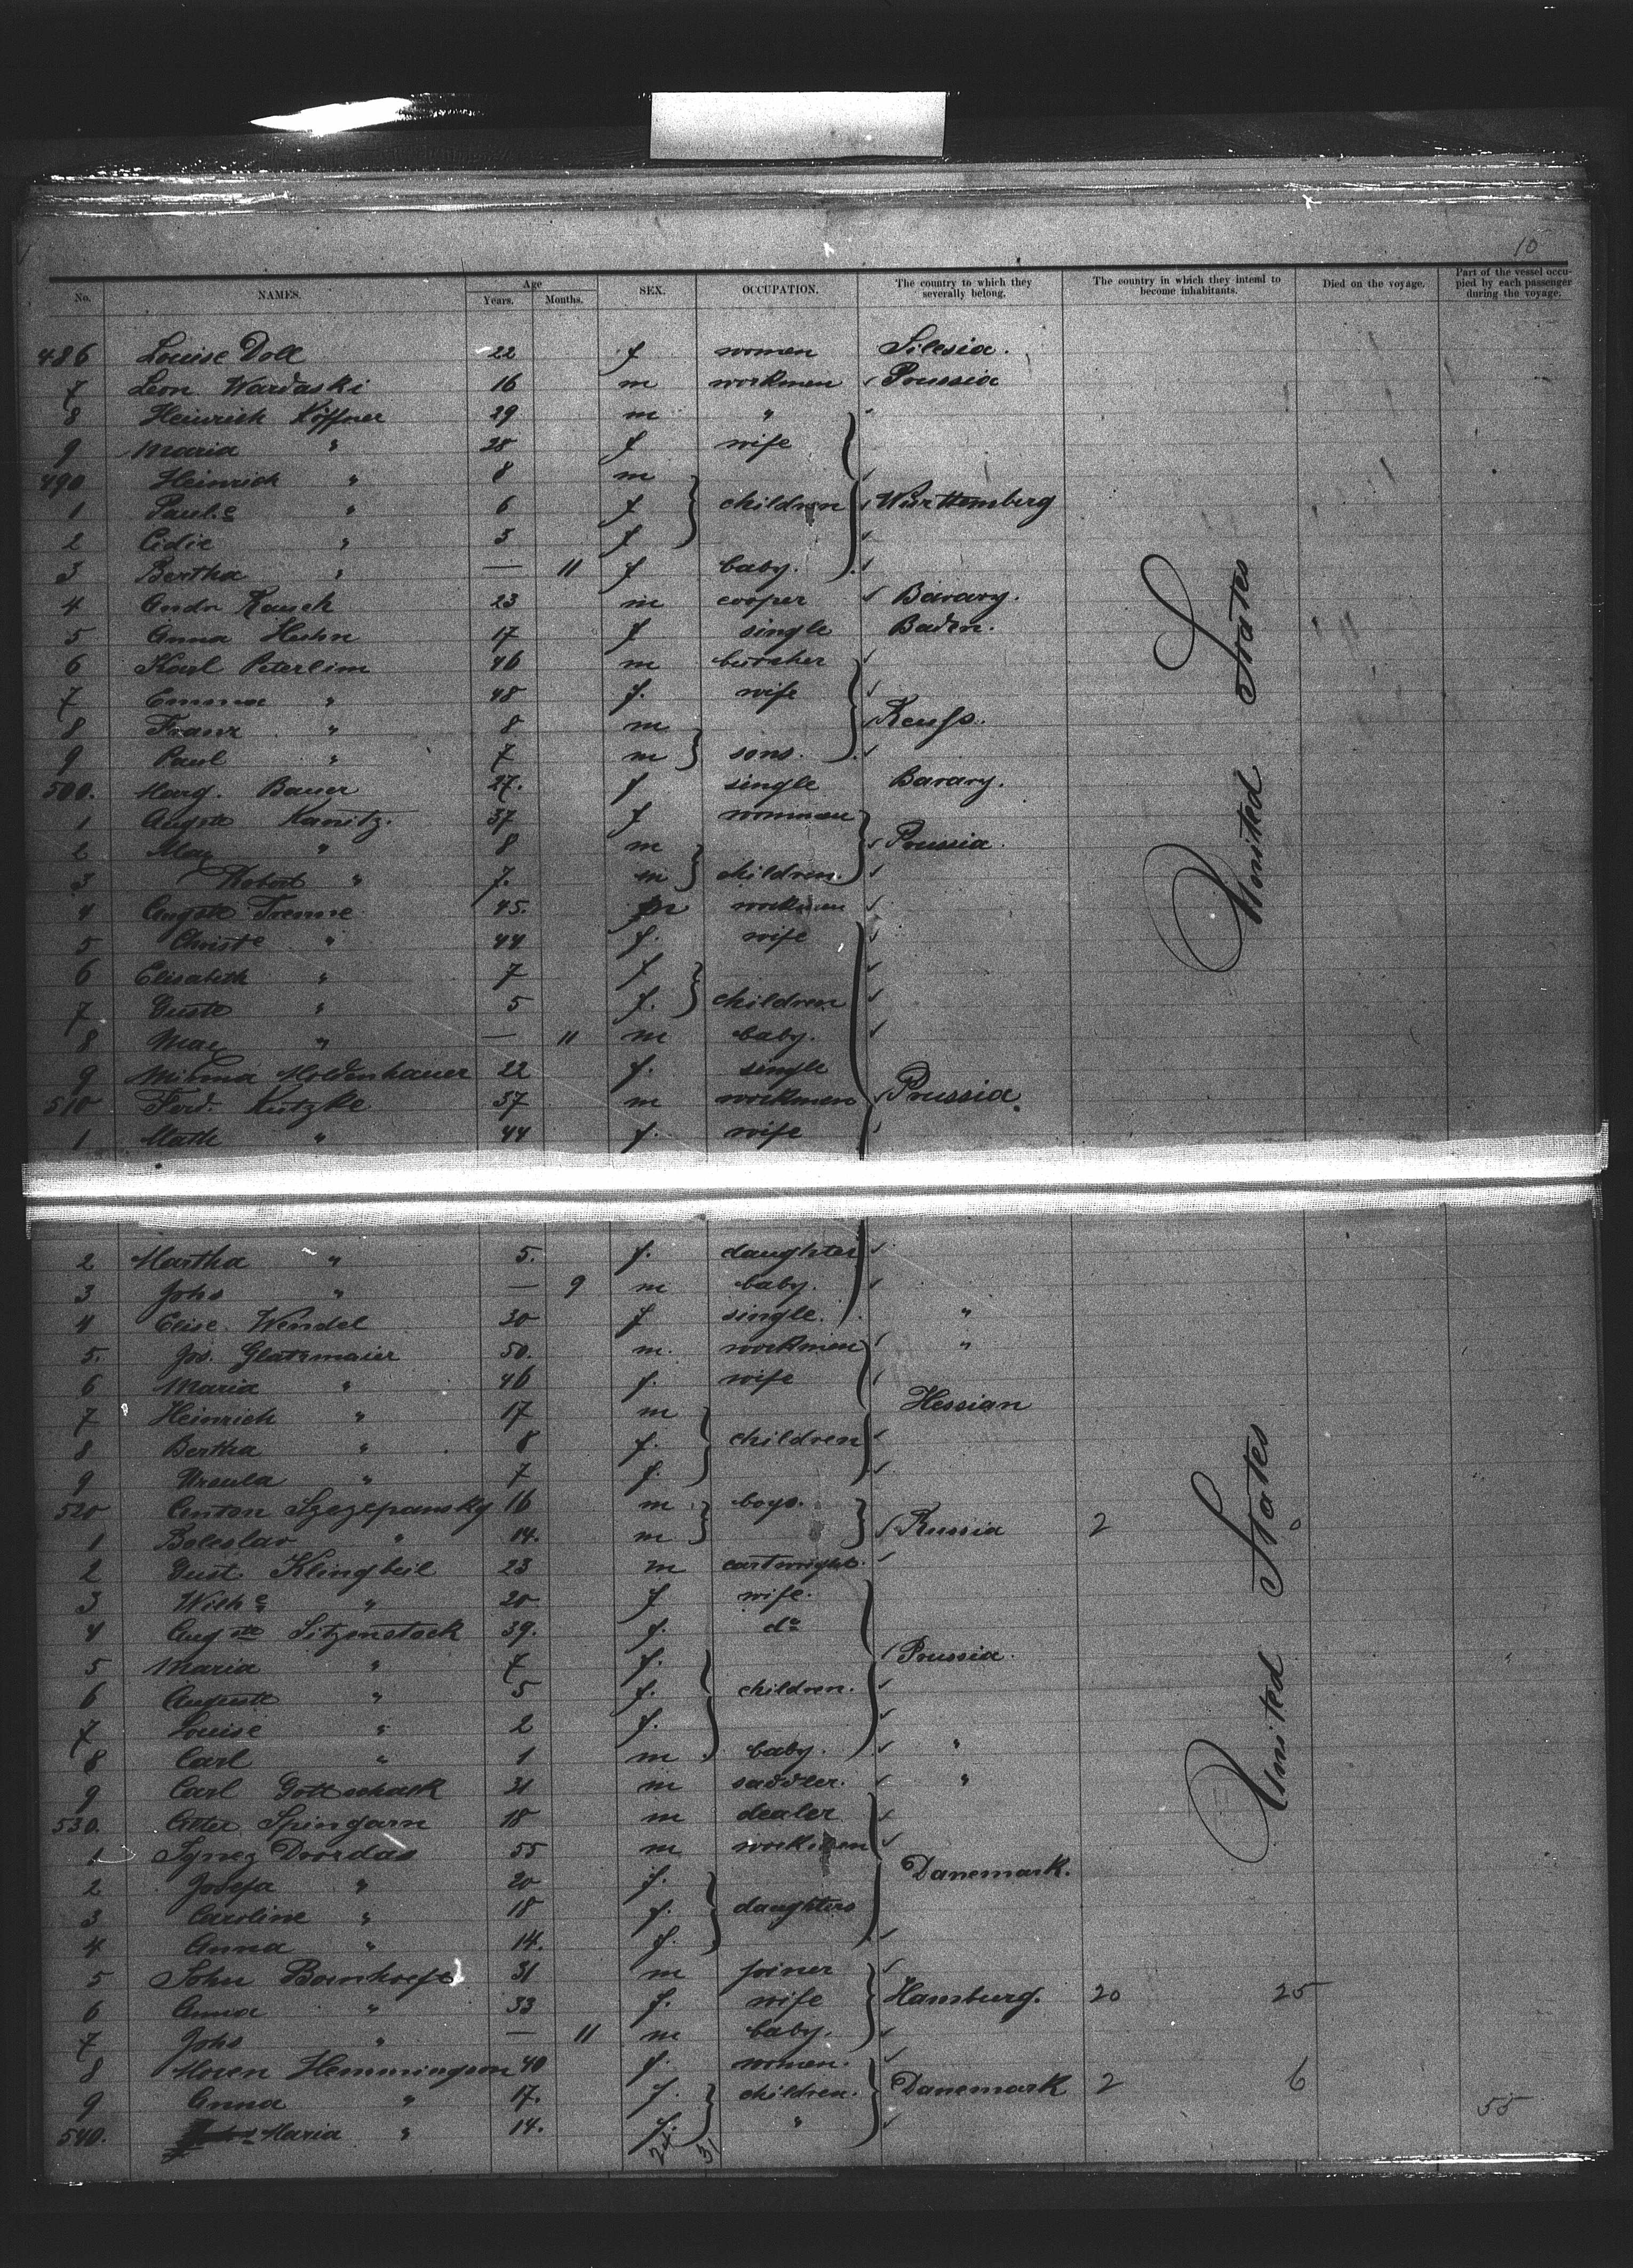 10
No. NAMES. Age Years. Months. SEX. OCCUPATION. The country to which they severally belong. The country in which they intend to become inhabitants. Died on the voyage. Part of the vessel occupied by each passenger during the voyage.
486 Louise Doll 22 f women Silesia.
7 Leon Wardaski 16 m workmen Prussia
8 Heinrich Köffner 29 m "
9 Maria " 28 f wife
490 Heinrich " 8 m
1 Paul.e " 6 f children Württemberg
2 Lidie " 5 f
3 Bertha " — 11 f baby.
4 Andr Rausch 23 m cooper Bavary.
5 Anna Huhn 17 f single Baden.
6 Karl Peterlim 46 m butcher
7 Emma " 48 f. wife
8 Franz " 8 m Reuss.
9 Paul " 7 m sons.
500. Marg. Bauer 27. f single Bavary.
1 Auguste Kanitz. 37 f womman
2 Max " 8 m Prussia
3 Robert " 7. m children.
4 Auguste Tremme 45. m workmen
5 Christe " 44 f. wife
6 Elisabeth " 7 f
7 Guste " 5 f. children
8 Max " — 11 m baby.
9 Milma Moldenhauer 22 f. single
510 Ferd. Kutzke 37 m workmen Prussia.
1 Math " 44 f. wife
2 Martha " 5. f. daughter
3 Johs " — 9 m baby.
4 Elise Wendel 30 f single. "
5. Jos. Glatzmaier 50. m. workmen "
6 Maria " 46 f. wife
7 Heinrich " 17 m Hessian
8 Bertha " 8 f. children
9 Ursula " 7 f.
520 Anton Szezepansky 16 m boys.
1 Boleslav " 14. m Russia 2 0
2 Gust. Klingbeil 23 m cartwright.
3 Wilhe " 20 f wife.
4 Auguste Sitzenstock 39. f. do
5 Maria " 7 f. Prussia.
6 Auguste " 5 f. children.
7 Louise " 2 f.
8 Carl " 1 m baby. "
9 Carl Gottschalk 31 m saddler. "
530. Spingarn 18 m dealer
1 Dvordas 55 m workmen
2 Josefa " 20 f. Danemark.
3 Caroline " 18 f. daughters
4 Anna " 14. f.
5 John Bornhoeft 31 m joiner
6 Anna " 33 f. wife Hamburg. 20 25
7 Johs " — 11 m baby.
8 Moren Hemmingson 40 f. women.
9 Anna " 17. f. children. Danemark 2 6
540. Maria " 14. f. "
55
24 31
United States
United States